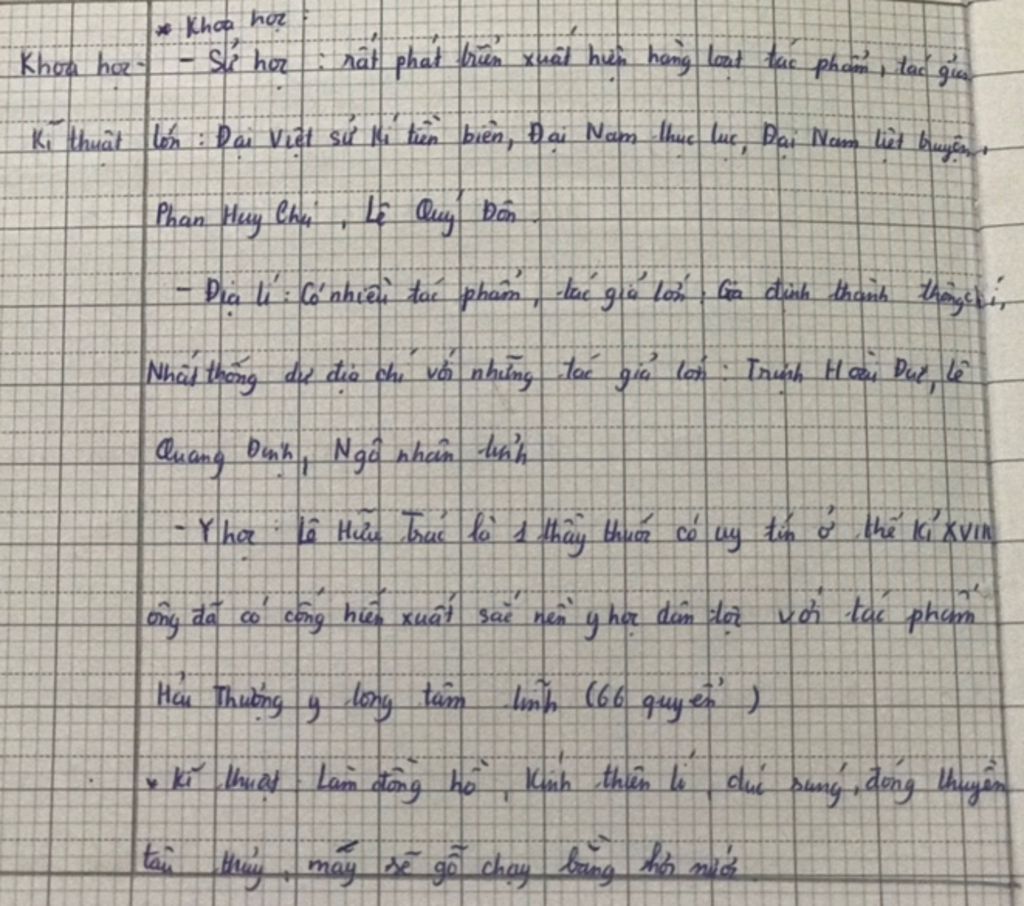 * Khoa học :
Khoa học - - Sử học : rất phát triển xuất hiện hàng loạt tác phẩm, tác giả
Kĩ thuật lớn : Đại Việt sử kí tiền biên, Đại Nam thực lục, Đại Nam liệt truyện,
Phan Huy Chú, Lê Quý Đôn.
- Địa lí : Có nhiều tác phẩm, tác giả lớn, Gia định thành thông chí,
Nhất thống dư địa chí với những tác giả lớn : Trịnh Hoài Đức, lê
Quang Định, Ngô nhân tỉnh
- Y học : Lê Hữu Trác là 1 thầy thuốc có uy tín ở thế kỉ XVIII
ông đã có cống hiến xuất sắc nền y học dân tộc với tác phẩm
Hải Thượng y tông tâm lĩnh (66 quyển)
* Kĩ thuật : Làm đồng hồ, Kính thiên lí, đúc súng, đóng thuyền
tàu thủy, máy sẻ gỗ chạy bằng hơi nước.